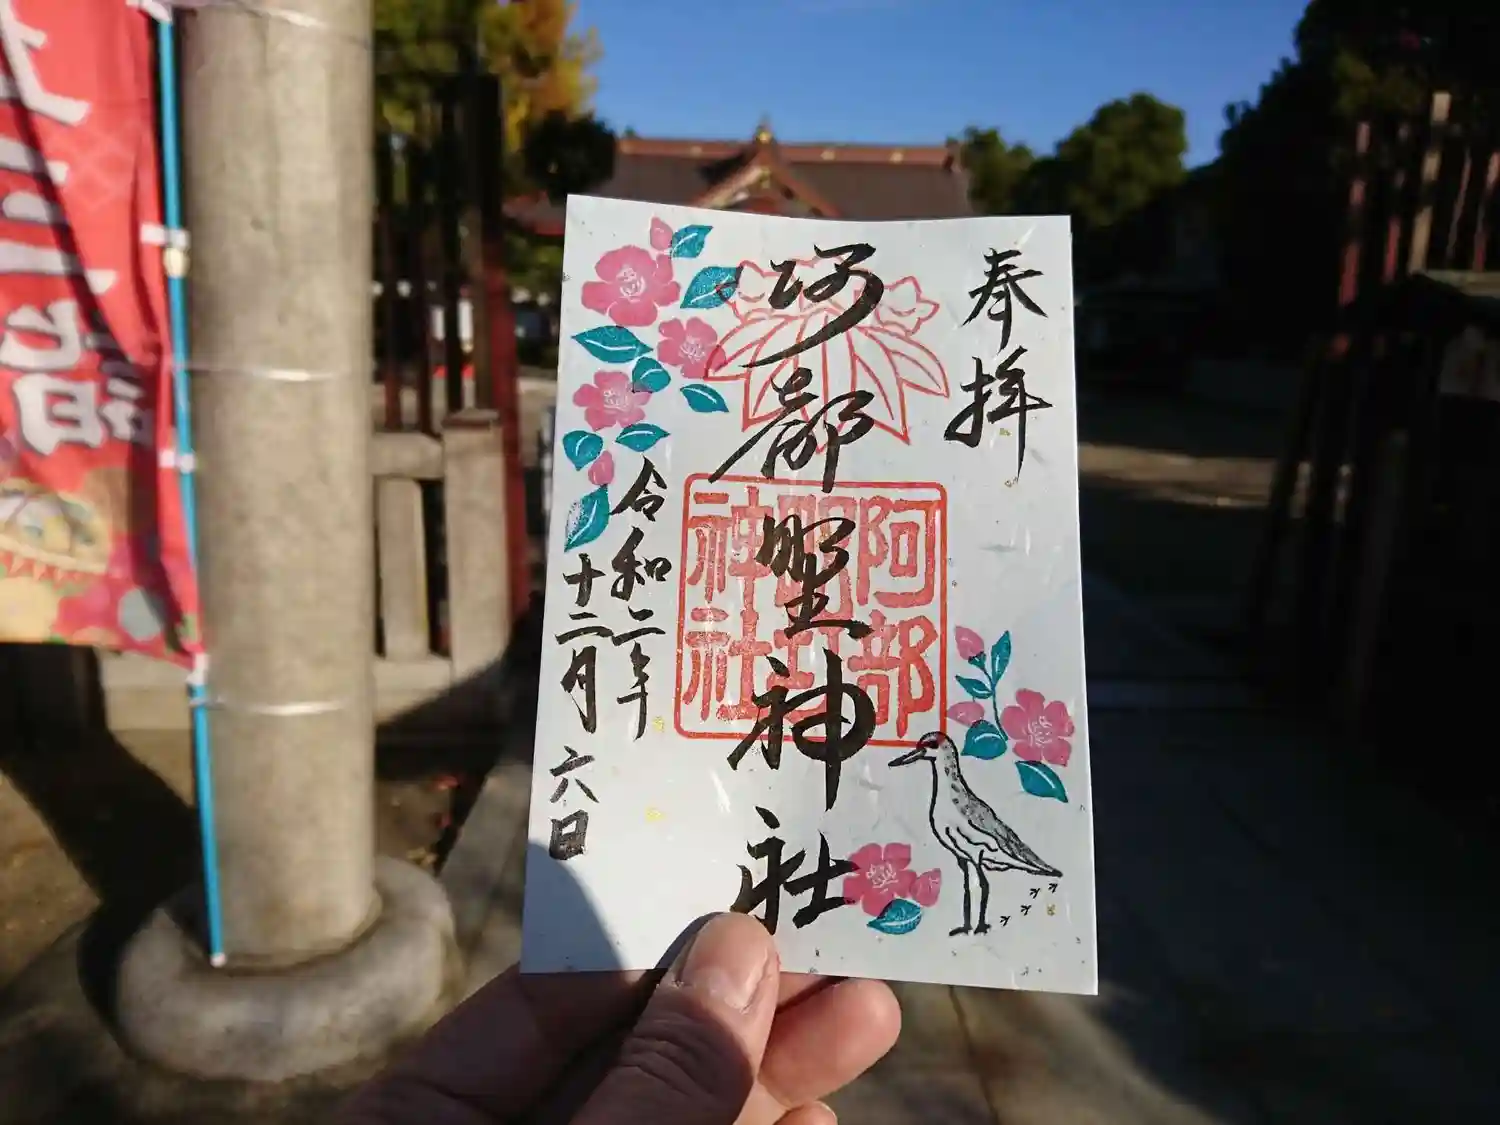 奉拝
阿都野神社
阿部野神社
令和二年
十二月六日
七五三
詣